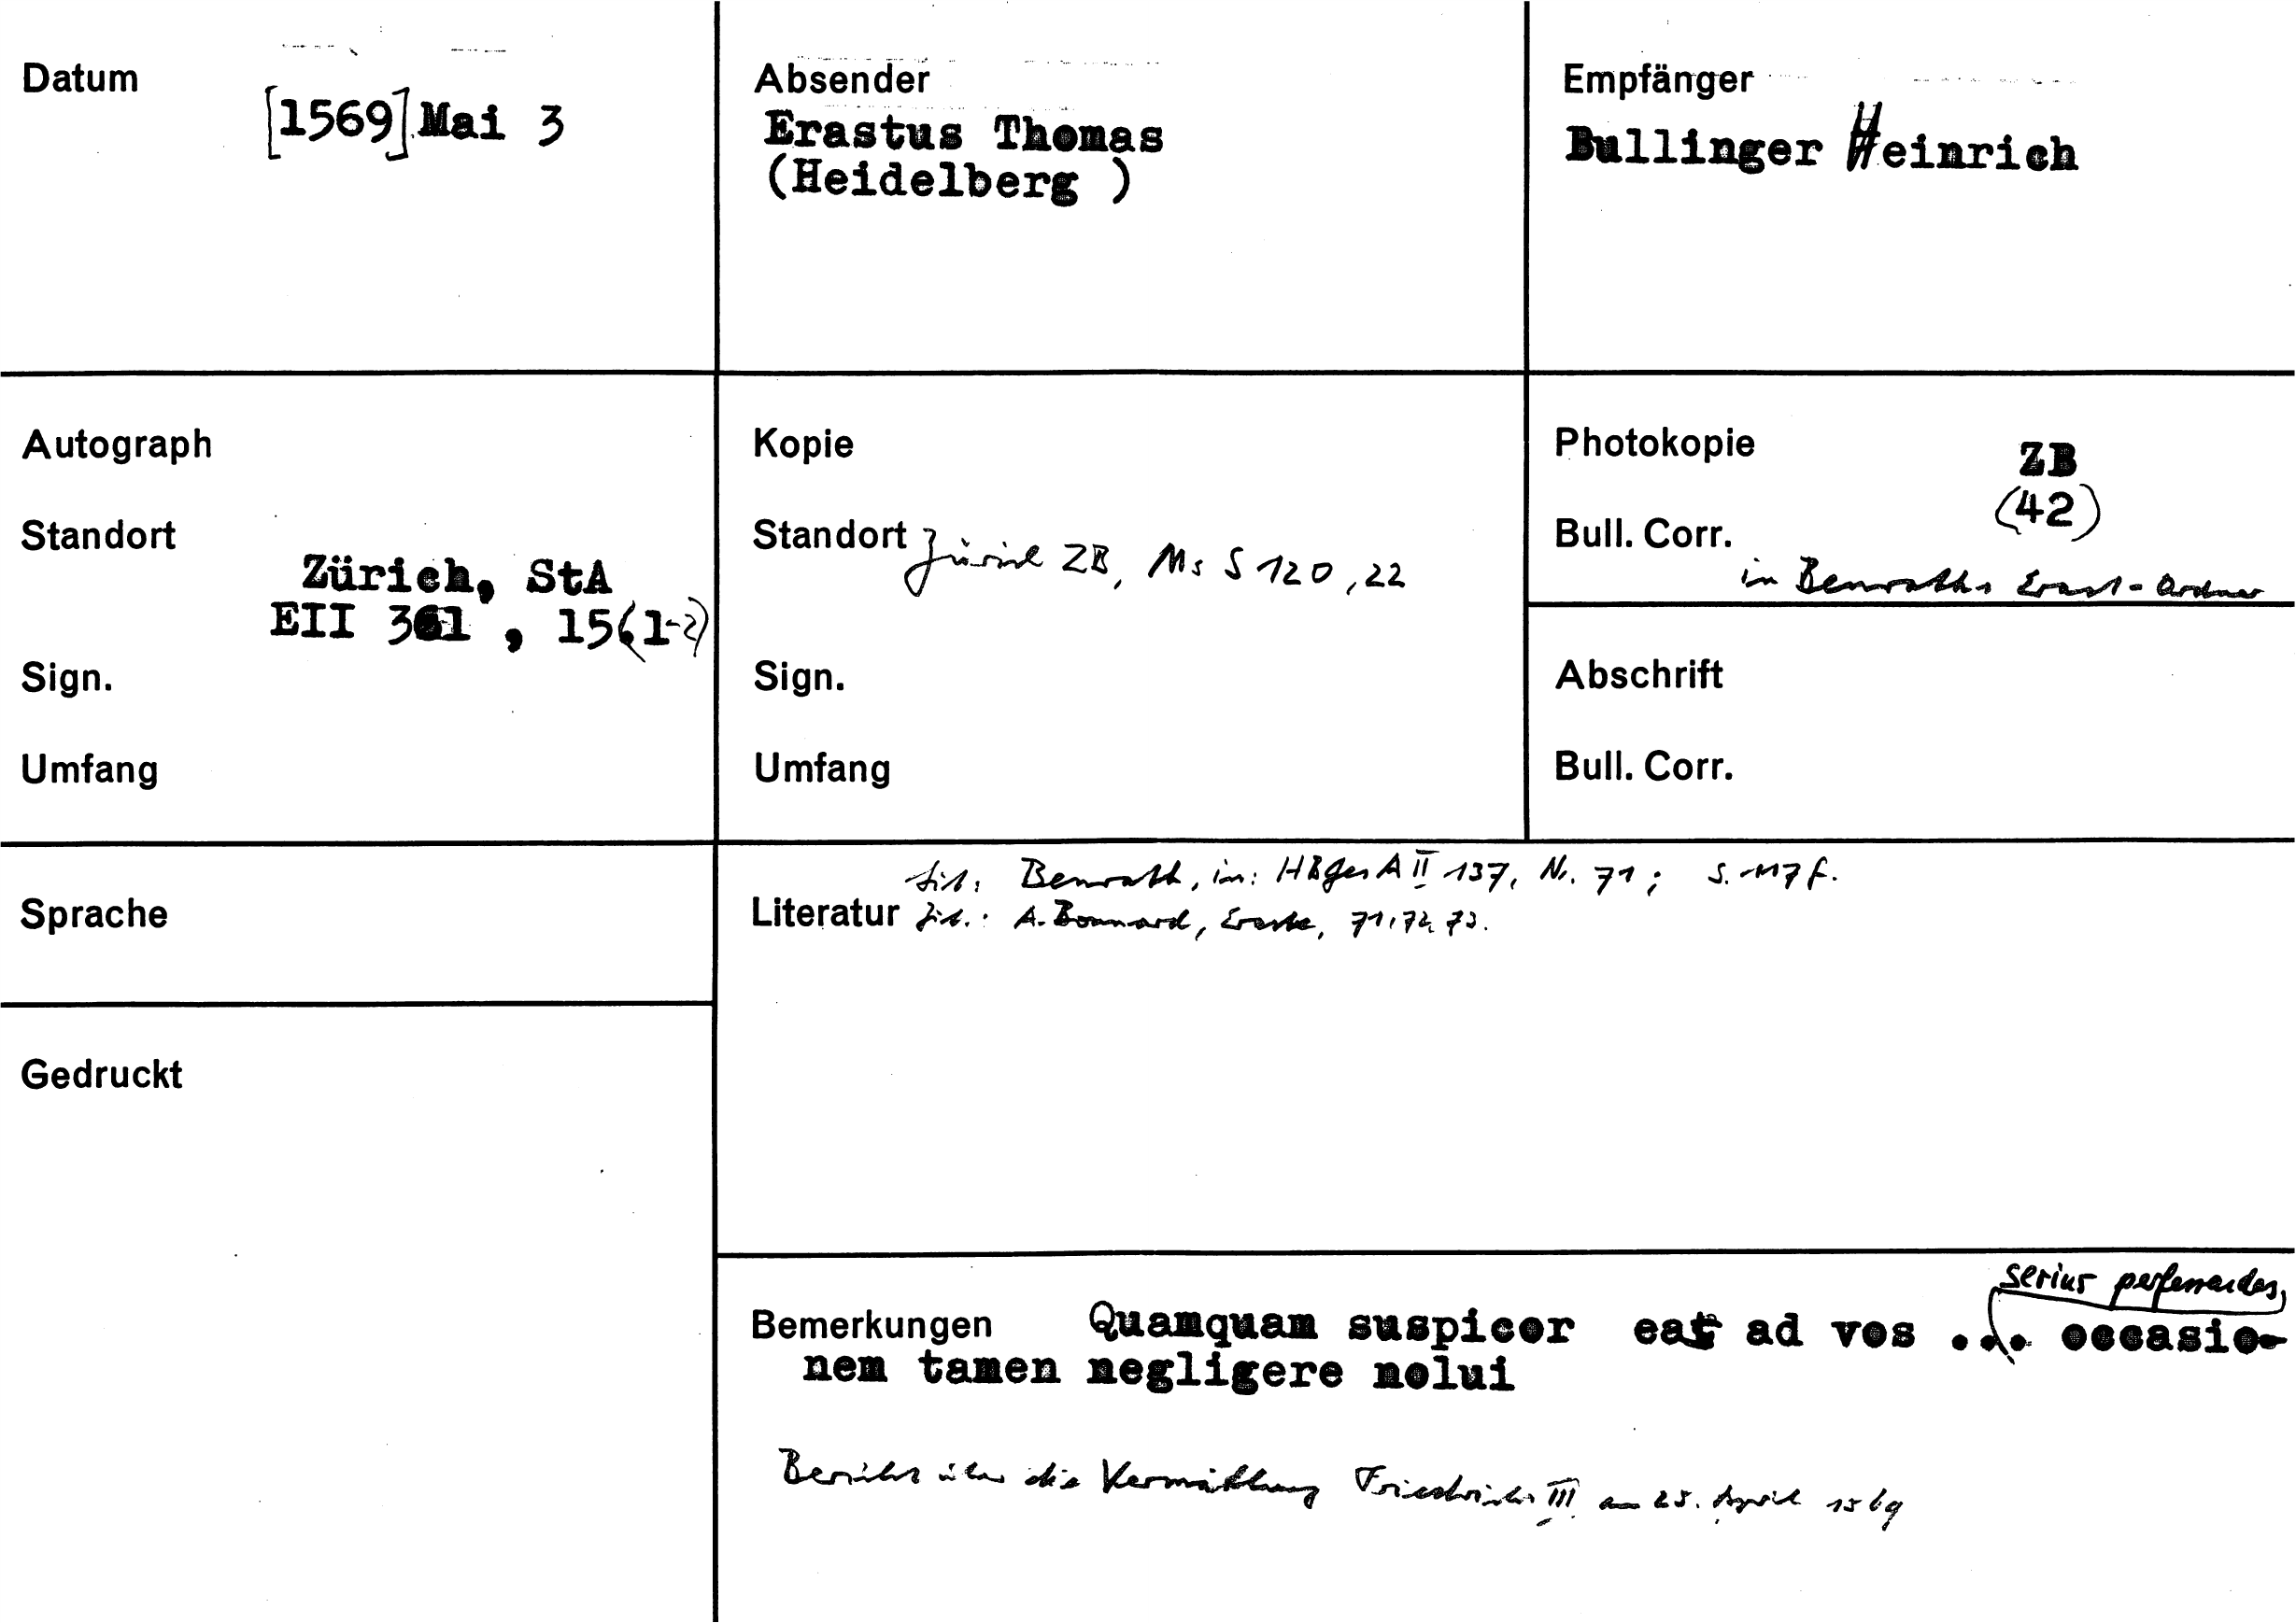 Datum
[1569] Mai 3
Absender
Erastus Thomas
(Heidelberg )
Empfänger
Bullinger Heinrich
Autograph
Standort
Zürich, StA
EII 361 , 15(1-2)
Sign.
Umfang
Kopie
Standort Zürich ZB, Ms S 120, 22
Sign.
Umfang
Photokopie ZB
(42)
Bull. Corr.
in Benraths Erast-Ordner
Abschrift
Bull. Corr.
Sprache
Gedruckt
zit: Benrath, in: HBGesA II 137, Nr. 71; S. 117 f.
Literatur Zit.: A. Bonnard, Eraste, 71, 72, 73.
serius perferendas,
Bemerkungen Quamquam suspicor eas ad vos ... occasio-
nem tamen negligere nolui
Bericht über die Vermählung Friedrichs III am 25. April 1569